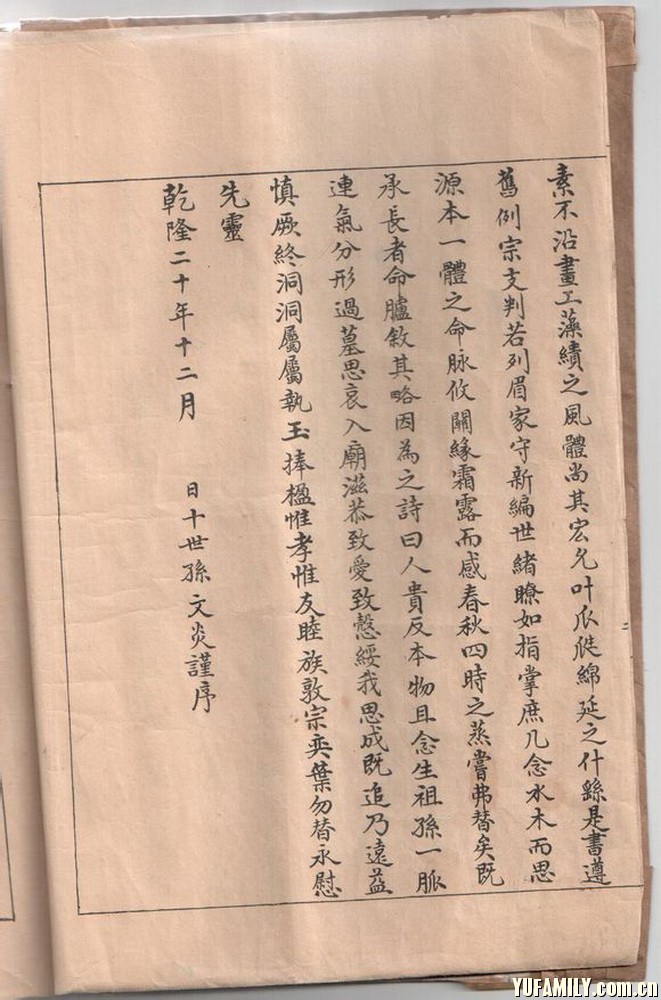 素不沿畫工藻繢之風體尚其宏允叶瓜瓞綿延之什繇是書遵
舊例宗支判若列眉家守新編世緒瞭如指掌庶几念水木而思
源本一體之命脉攸關緣霜露而感春秋四時之蒸嘗弗替矣既
承長者命臚敘其略因為之詩曰人貴反本物且念生祖孫一脈
連氣分形過墓思哀入廟滋恭致愛致慤綏我思成既追乃遠益
慎厥終洞洞屬屬執玉捧楹惟孝惟友睦族敦宗奕葉勿替永慰
先靈
乾隆二十年十二月 日十世孫文炎謹序
二
YUFAMILY.com.cn